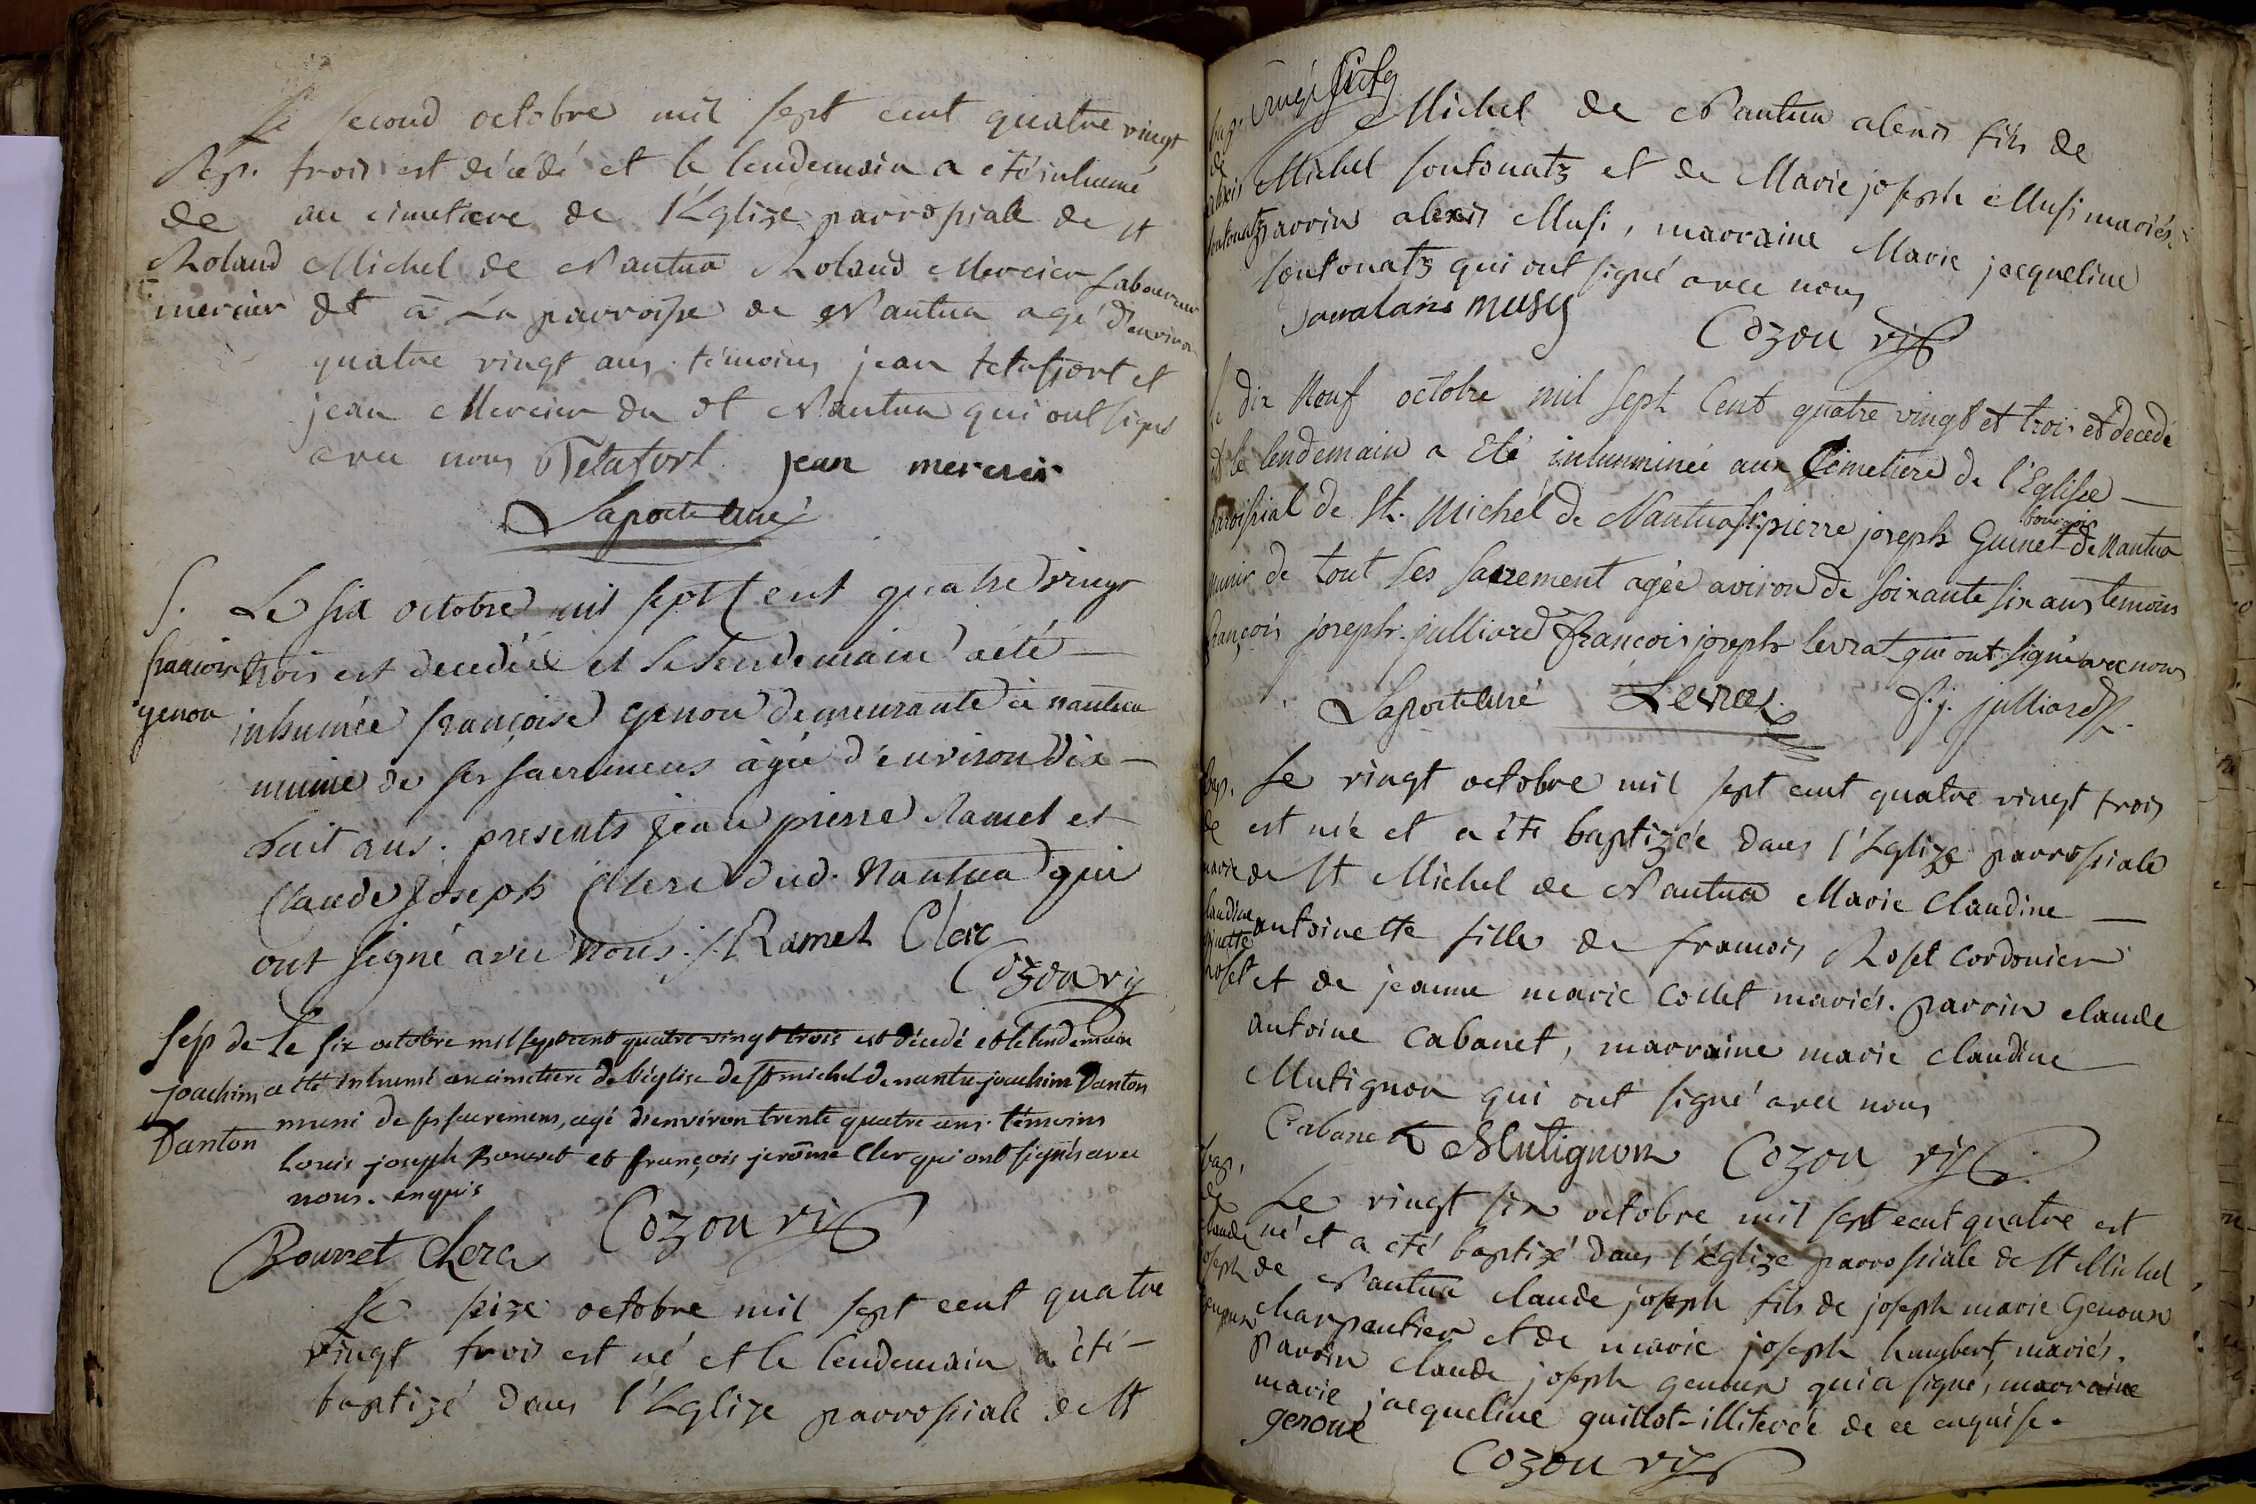 Le second octobre mil sept cent quatre vingt
Sep. trois est décédé et le lendemain a été inhumé
de au cimetiere de l'Eglize parrossiale de st
Roland Michel de Nantua Roland Mercier Laboureur
mercier det a La parroisse de Nantua agé d'environ
quatre vingt ans. témoins jean tetafort et
jean Mercier du dt Nantua qui ont signé
avec nous Tetafort jean mercier
Laporte curé
S. Le six octobre mil sept Cent quatre vingt
francoise trois est decedée et le lendemain a été
genou inhumée françoise genou demeurante à nantua
munie de ses sacremens agée d'environ dix
huit ans. presents Jean pierre Ramel et
Claude Joseph Clerc dud. Nantua qui
ont signé avec nous. Ramel Clerc
Cozon vic
Sep de Le six octobre mil sept cent quatre vingt trois est décédé et le lendemain
joachim a été inhumé au cimetiere de l'église de st michel de nantua joachim Danton
Danton muni de ses sacremens, agé d'environ trente quatre ans. témoins
Louis joseph Bouvet et françois jerôme Clerc qui ont signés avec
nous. enquis
Bouvet Clerc Cozon vic
Le seize octobre mil sept cent quatre
vingt trois est né et le lendemain a été
baptizé dans l'Eglize parrossiale de st
bap. Michel de Nantua alexis fils de
de Michel sontonatz et de Marie joseph Musi mariés.
alexis parrin alexis Musi, marraine Marie jacqueline
sontonatz sontonatz qui ont signé avec nous
musy Cozon vic
Le dix Neuf octobre mil sept Cent quatre vingt et trois et decedé
et le lendemain a Eté inhumminée aux Cimetiere de l'Eglisee
paroissial de St. Michel de Nantua Sr. pierre joseph Guinet bourgois de Nantua
munir de tout ses sacrement agée aviron de soixante six ans temoins
françois joseph julliard francois joseph levrat qui ont signé avec nous
Laporte curé Levrat f. j. julliard
bap. Le vingt octobre mil sept cent quatre vingt trois
de est née et a été baptizée dans l'Eglize parrossiale
marie de St Michel de Nantua Marie Claudine
claudine antoinette fille de francois Roset cordonier
Roset et de jeanne marie Collet mariés. parrin claude
antoine Cabanet, marraine marie claudine
Mutignon qui ont signé avec nous
Cabanet Mutignon Cozon vic
bap. Le vingt six octobre mil sept cent quatre est
de
claude né et a été baptizé dans l'Eglize parrossiale de St Michel
joseph de Nantua claude joseph fils de joseph marie Genoux
genoux charpentier et de marie joseph humbert mariés.
Parrin claude joseph genoux qui a signé, marraine
marie jacqueline guillot illiterée de ce enquise.
genoux
Cozon vic